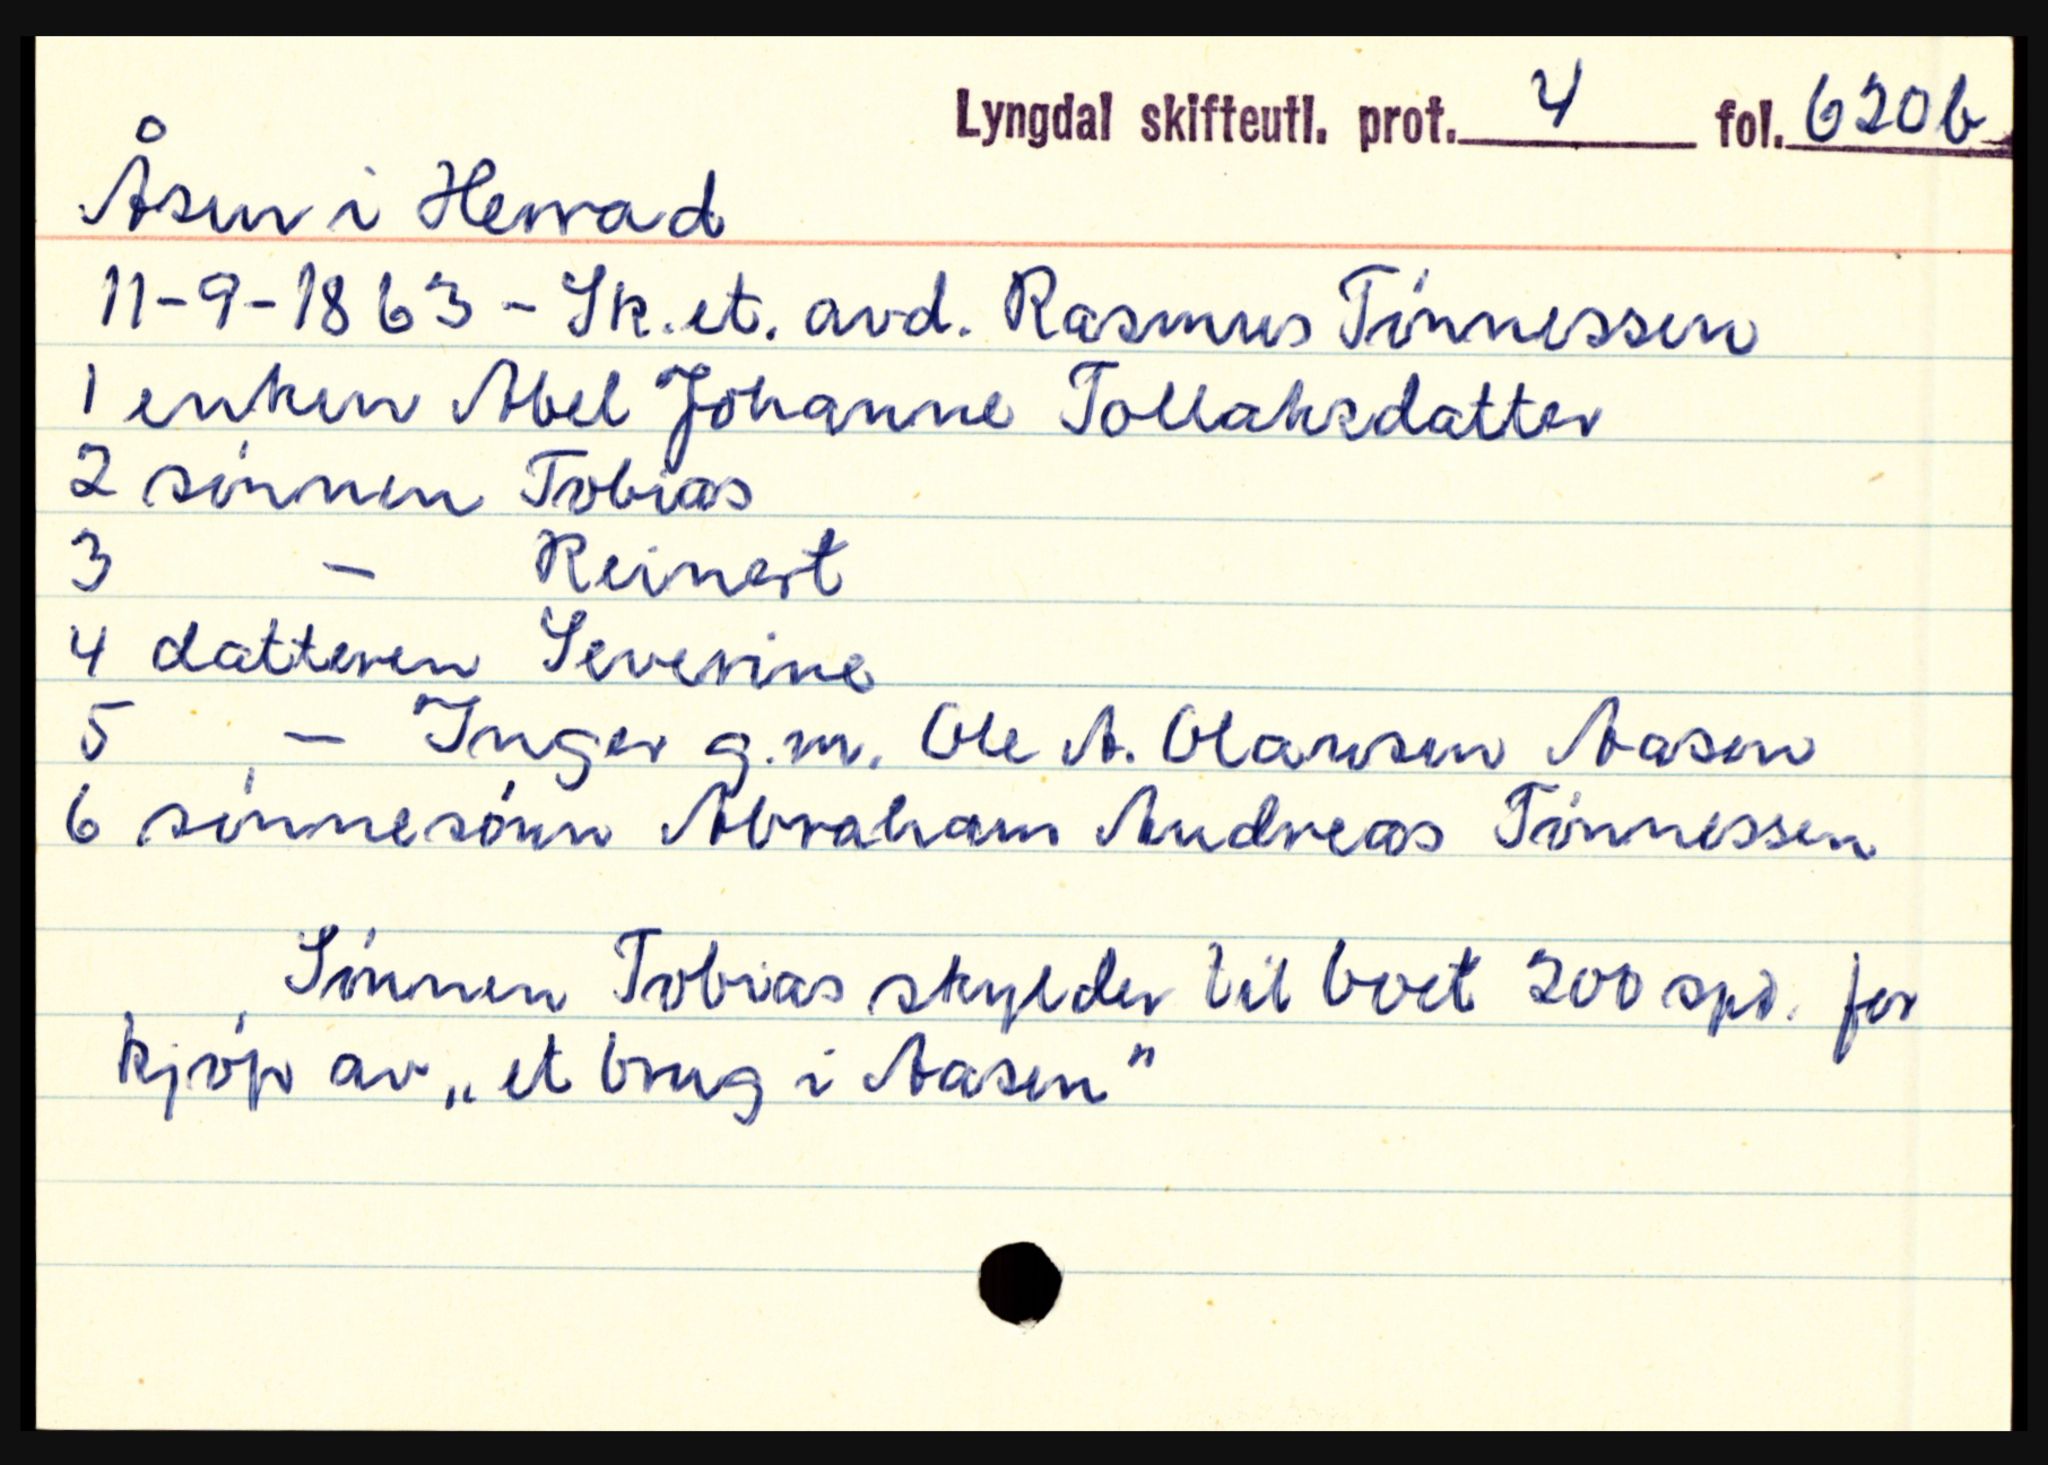 Lyngdal skifteutl. prot. 4 fol. 620b
Åsen i Herrad
11-9-1863 - Sk. et. avd. Rasmus Tønnessen
1 enken Abel Johanne Tollaksdatter
2 sønnen Tobias
3 - Reinert
4 datteren Severine
5 - Inger g.m. Ole A. Olausen Aasen
6 sønnesønn Abraham Andreas Tønnessen
Sønnen Tobias skylder til boet 200 spd. for
kjøp av „et brug i Aasen”